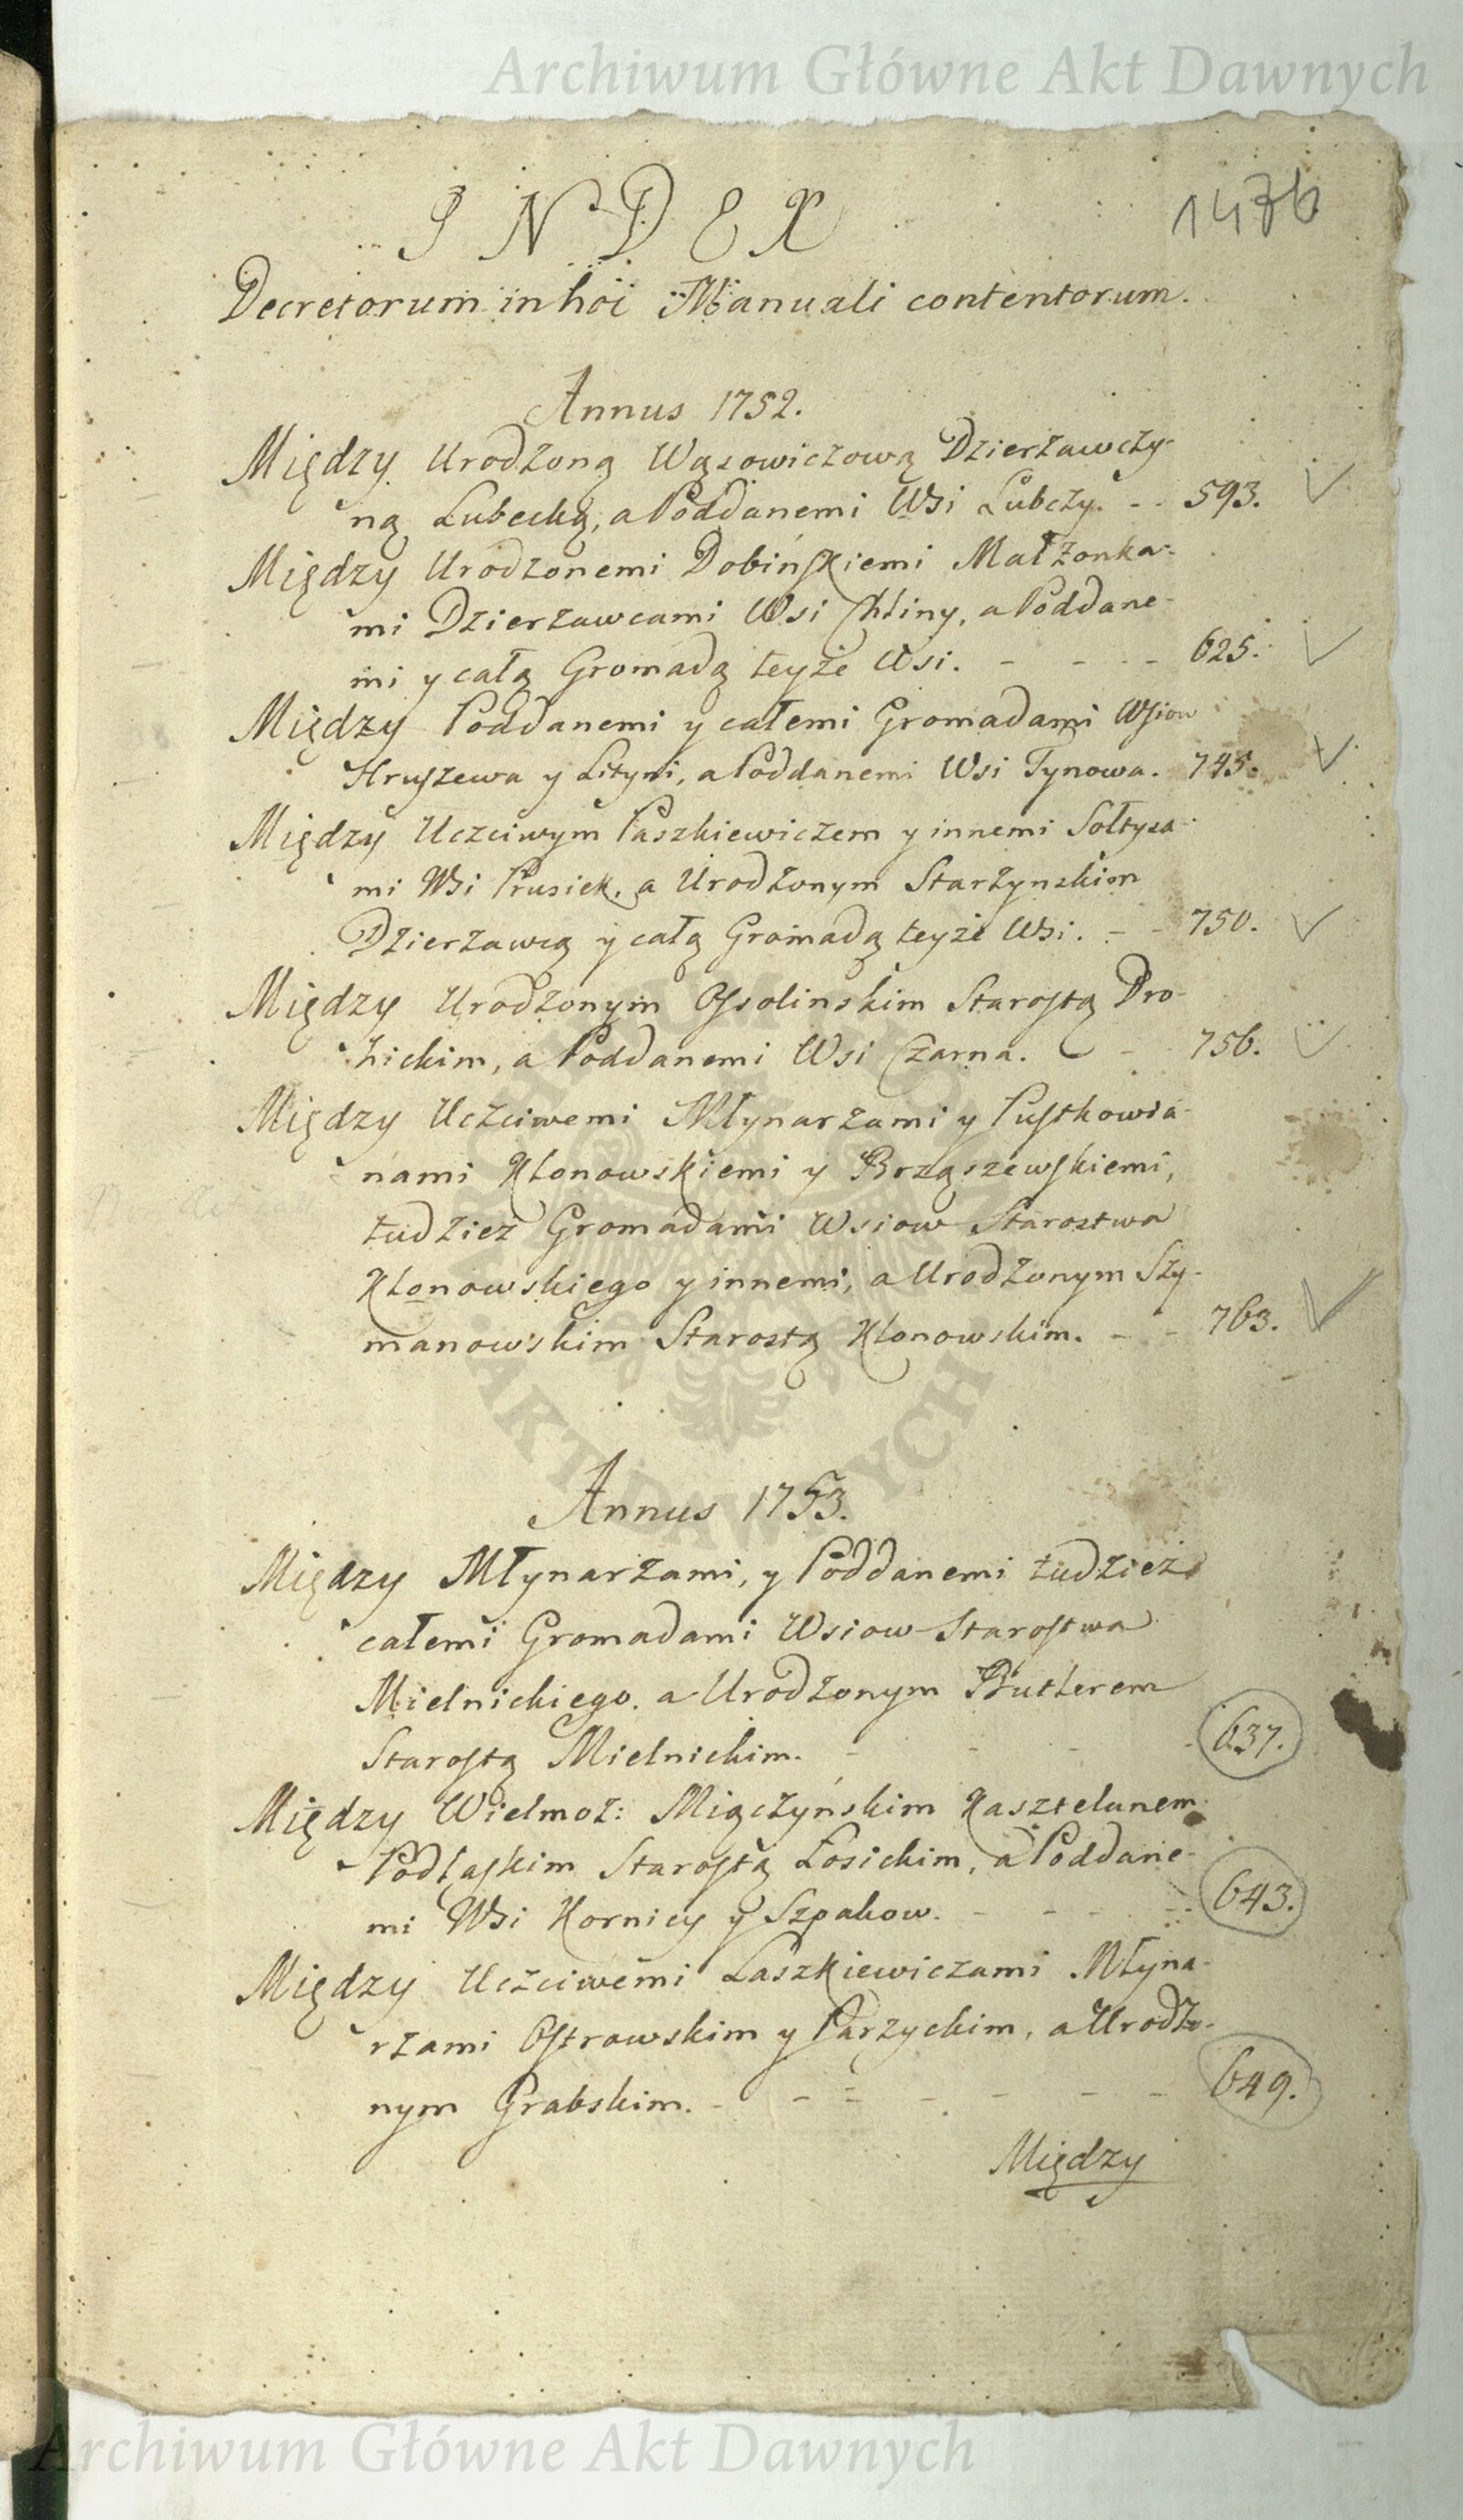 Archiwum Główne Akt Dawnych
1476
INDEX
Decretorum in hoc Manuali contentorum.
Annus 1752.
Między Urodzoną Wąsowiczową Dzierzawczy-
ną Lubecką, a Poddanemi Wsi Lubczy. - - 593.
Między Urodzonemi Dobińskiemi Małżonka-
mi Dzierzawcami Wsi Chliny, a Poddane-
mi y całą Gromadą teyże Wsi. - - - - 625.
Między Poddanemi y całemi Gromadami Wsiow
Hruszewa y Lityni, a Poddanemi Wsi Tynowa. 745.
Między Uczciwym Paszkiewiczem y innemi Sołtysa-
mi Wsi Prusiek, a Urodzonym Starzynskim
Dzierzawcą y całą Gromadą teyże Wsi. - - 750.
Między Urodzonym Ossolinskim Starostą Dro-
hickim, a Poddanemi Wsi Czarna. - - 756.
Między Uczciwemi Młynarzami y Pustkowia-
nami Klonowskiemi y Brząszewskiemi,
tudzież Gromadami Wsiow Starostwa
Klonowskiego y innemi, a Urodzonym Szy-
manowskim Starostą Klonowskim. - - 763.
Annus 1753.
Między Młynarzami, y Poddanemi tudzież
całemi Gromadami Wsiow Starostwa
Mielnickiego, a Urodzonym Butlerem
Starostą Mielnickim. - - - - 637.
Między Wielmoż: Miączyńskim Kasztelanem
Podlaskim Starostą Łosickim, a Poddane-
mi Wsi Kornicy y Szpakow. - - - - 643.
Między Uczciwemi Laszkiewiczami Młyna-
rzami Ostrowskim y Parzyckim, a Urodzo-
nym Grabskim. - - - - - - - 649.
Między
AKT DAWNYCH
Archiwum Główne Akt Dawnych